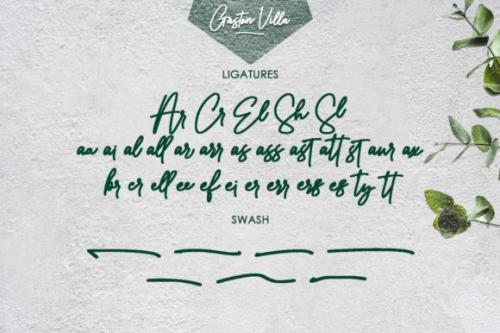 Gaston Villa
LIGATURES
Ar Cr El Sh Sl
aa ai al all ar arr as ass ast att st aur ax
br er ell ee ef ei er err ers es ty tt
SWASH